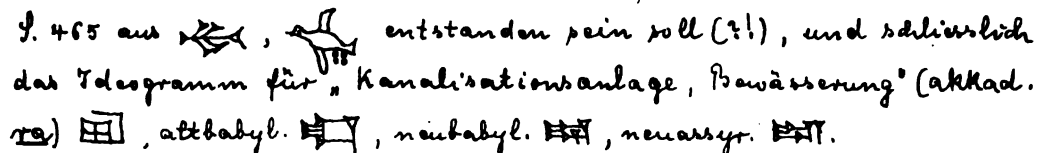 S. 465 aus , entstanden sein soll (?!), und schliesslich
das Ideogramm für „Kanalisationsanlage, Bewässerung" (akkad.
ra) , altbabyl. , neubabyl. , neuassyr. .